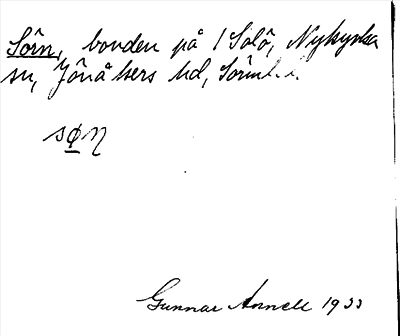 Sörn, bonden på 1 Solö, Nykyrka
sn, Jönåkers hd, Sörml.
sø̠η
Gunnar Annell 1933